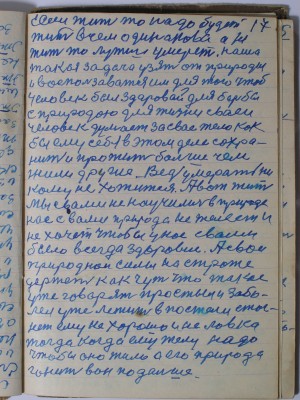 Если жит то надо будет 17
жит всем одинакова а не
жит то лутше умереть, наша
такая задача узят от природы
и воспользаватся им для того чтоб
человек был здаровай для борбы
с природою для жизни своей
человек думает засвае тело как
бы ему себя в этом деле сохра-
нит и прожит болше чем
жили другия. Вед умерат ни
кому не хотится. А вот жит
мы свами не научились в природе
нас свами природа не жалеет и
не хочет чтобы у нас свами
было всегда здоровие. А свои
природнои силы на строже
держат как чут что такае
уже говарят простыл и забо-
лел уже лежиш в постели стог-
нет ему не хорошо и не ловка
тогда когда ему телу надо
чтобы оно жило а его природа
гонит вон подалше.